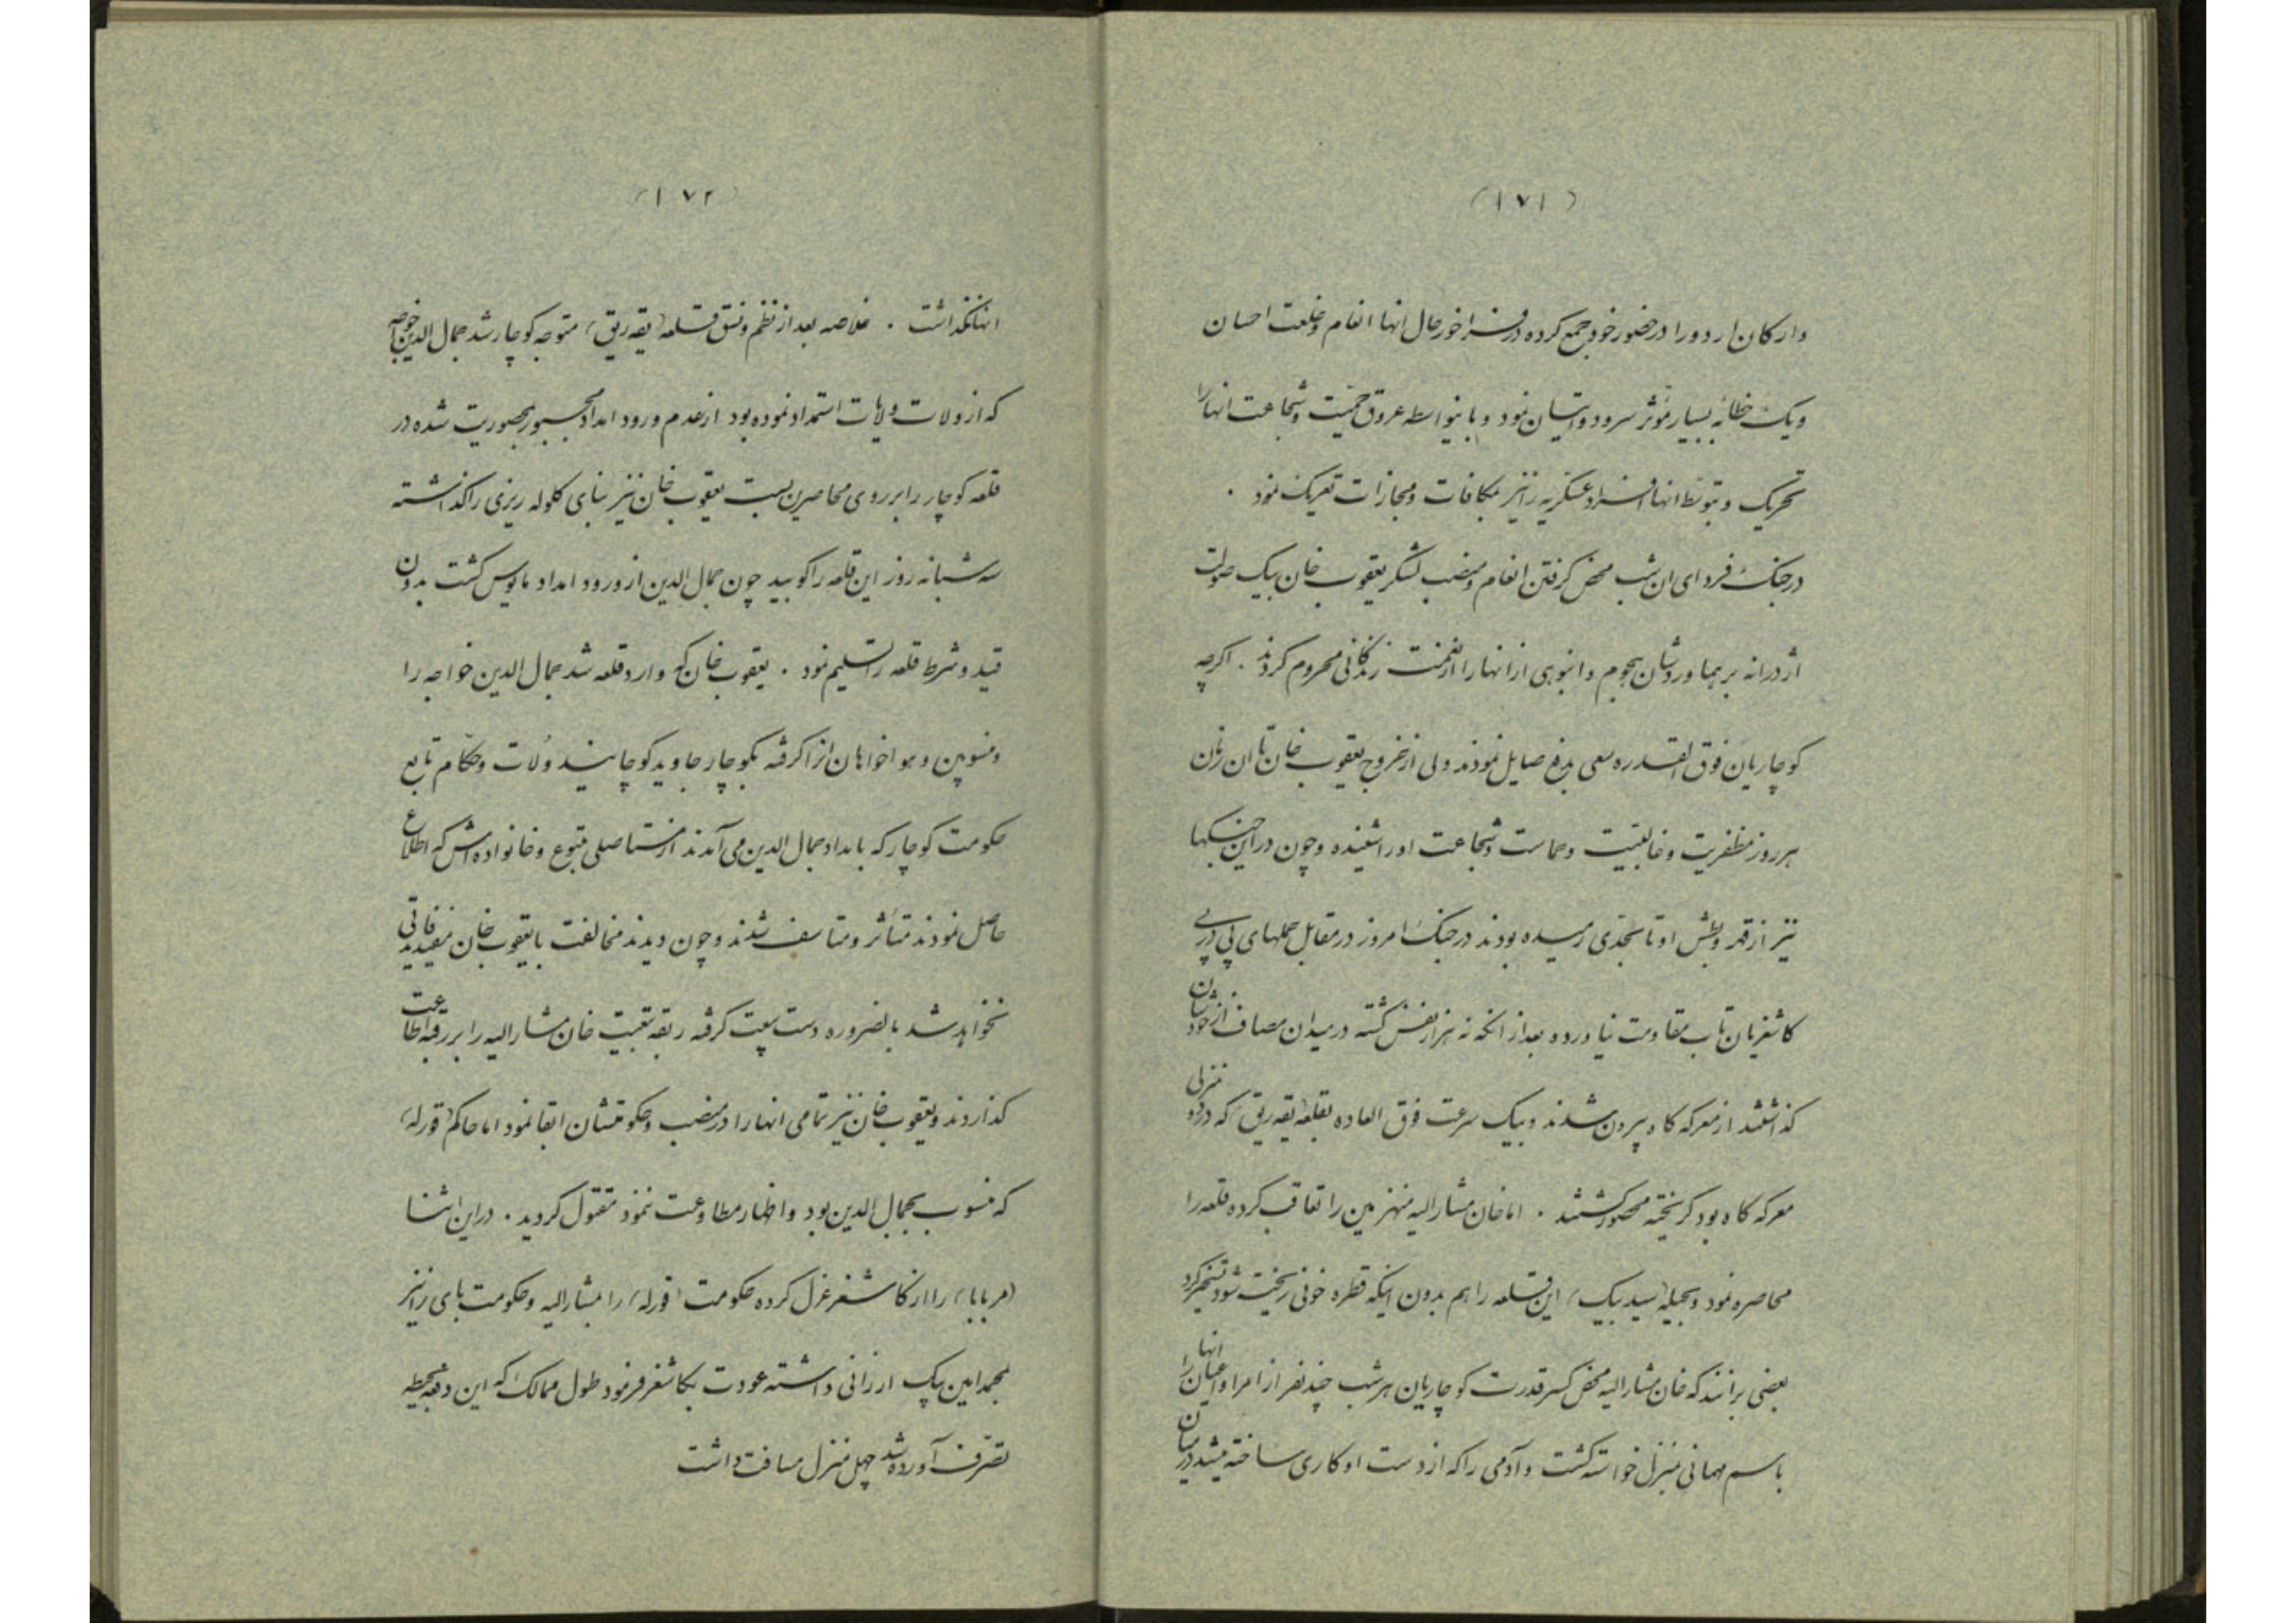 (۱۷۱)
وارکان اردو را درحضور خود جمع کرده درفراخور حال انها انعام وخلعت احسان
ویک خطابهٔ بسیار مؤثر سرود واتیان نمود و باینواسطه عروق حمیّت وشجاعت انهارا
تحریک وبتوسط انها افراد عسکریه رانیز بمکافات ومجازات تحریک نمود .
درجنک فردای ان شب محض کرفتن انعام ومنصب لشکر یعقوب خان بیک صولت
اژدرانه برهماوردشان هجوم وانبوهی ازانهارا ازنعمت زندکانی محروم کردند . اکرچه
کوچاریان فوق القدره سعی بدفع صایل نمودند ولی ازخروج یعقوب خان تا ان زمان
هرروز مظفریت وغالبیت وحماست وشجاعت اورا شنیده وچون دراین جنکها
نیز ازقهر وبطش او تابحدی رمیده بودند درجنک امروز درمقابل حملهای پی درپی
کاشغریان تاب مقاومت نیاورده بعداز انکه نه هزارنفس کشته درمیدان مصاف ازخودشان
کذاشتند ازمعرکه کاه بیرون شدند وبیک سرعت فوق العاده بقلعه (یقه ریق) که دردو منزلی
معرکه کاه بود کریخته محصور کشتند . اما خان مشارالیه منهزمین را تعاقب کرده قلعه را
محاصره نمود وبحیلهٔ (سید بیک) این قلعه را هم بدون اینکه قطره خونی ریخت شود تسخیر کرد
بعضی برانند که خان مشارالیه محض کسر قدرت کوچاریان هرشب چند نفر از امرا واعیان انها را
باسم مهمانی بمنزل خواسته کشت وآدمی را که ازدست او کاری ساخته میشد درمیان
(۱۷۲)
انها نکذاشت . خلاصه بعداز نظم ونسق قلعه (یقه ریق) متوجه کوچار شد جمال الدین خوجه
که از ولات ولایات استمداد نموده بود ازعدم ورود امداد مجبور بمحصوریت شده در
قلعه کوچار را برروی محاصرین بست یعقوب خان نیز بنای کلوله ریزی را کذاشته
سه شبانه روز این قلعه را کوبید چون جمال الدین از ورود امداد مایوس کشت بدون
قید وشرط قلعه را تسلیم نمود . یعقوب خان که وارد قلعه شد جمال الدین خواجه را
ومنسوبین وهواخواهان انرا کرفته بکوچار جاوید کوچانید ولات وحکام تابع
حکومت کوچار که بامداد جمال الدین می آمدند ازاستاصلی متبوع وخانواده اش که اطلاع
حاصل نمودند متأثر ومتاسف شدند وچون دیدند مخالفت بایعقوب خان مفید فائدتی
نخواهد شد بالضروره دست بیعت کرفته ربقه تبعیت خان مشارالیه را بررقبه اطاعت
کذاردند ویعقوب خان نیز تمامی انهارا درمنصب وحکومتشان ابقا نمود اما حاکم (قورله)
که منسوب بجمال الدین بود واظهار مطاوعت ننمود مقتول کردید . دراین اثنا
(میر بابا) را از کاشغر عزل کرده حکومت (قورله) را بمشارالیه وحکومت بای رانیز
بمحمد امین بیک ارزانی داشته عودت بکاشغر فرمود طول ممالک که این دفعه بحیطه
تصرّف آورده شد چهل منزل مسافت داشت